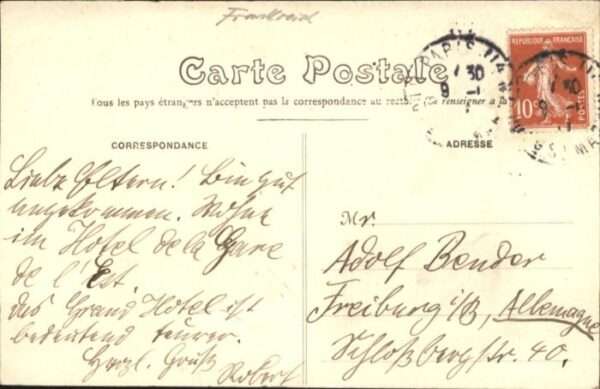 Frankreich
REPUBLIQUE FRANÇAISE
10c
POSTES
PARIS
Carte Postale
Tous les pays étrangers n'acceptent pas la correspondance au recto. (Se renseigner à
CORRESPONDANCE
ADRESSE
Liebe Eltern! Bin gut
angekommen. Wohne
im Hotel de la Gare
de l'Est.
Das Grand Hotel ist
bedeutend teurer.
Herzl. Gruß
Robert
Mr.
Adolf Bender
Freiburg i/B, Allemagne
Schloßbergstr. 40.